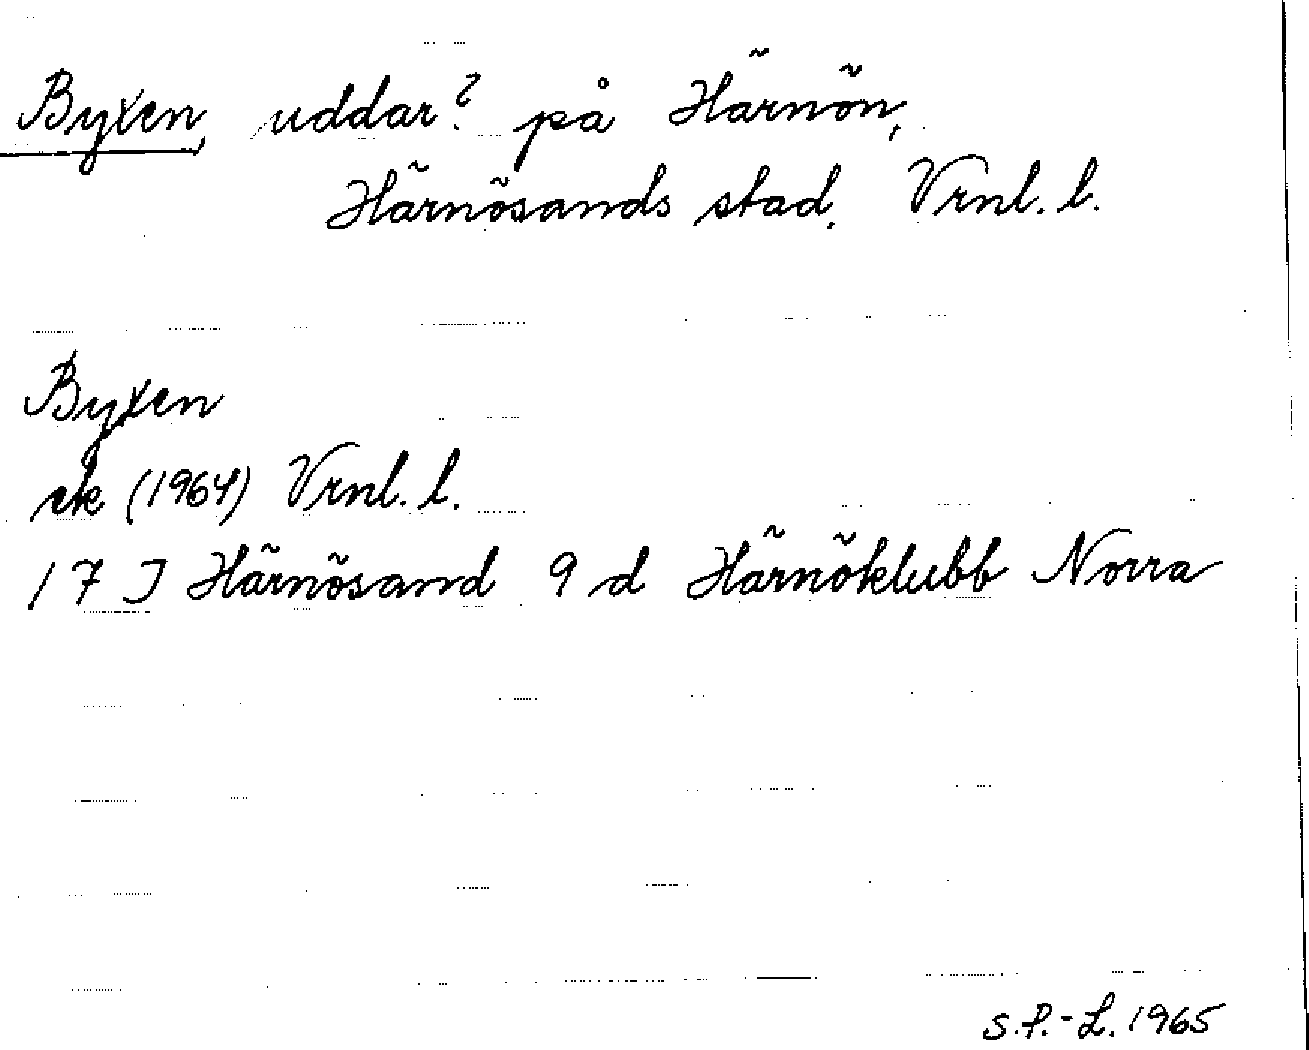 Byxen, uddar? på Härnön,
Härnösands stad. Vrnl. l.
Byxen
ek (1964) Vrnl. l.
17 J Härnösand 9 d Härnöklubb Norra
S.P.-L. 1965